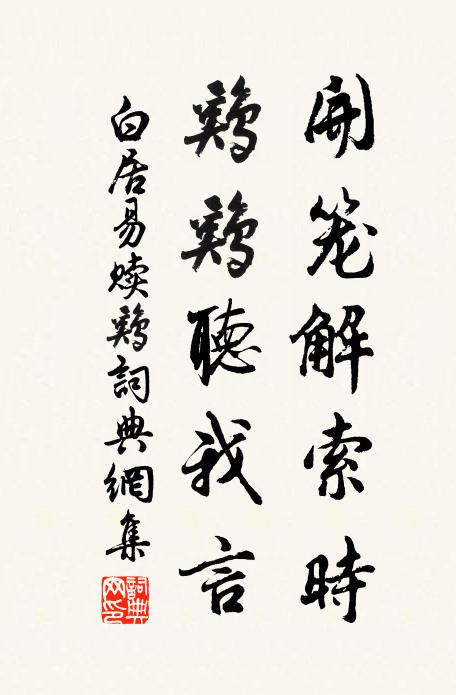 開笼解索時
鷄鷄聽我言
白居易赎鷄詞典網集
詞典網印